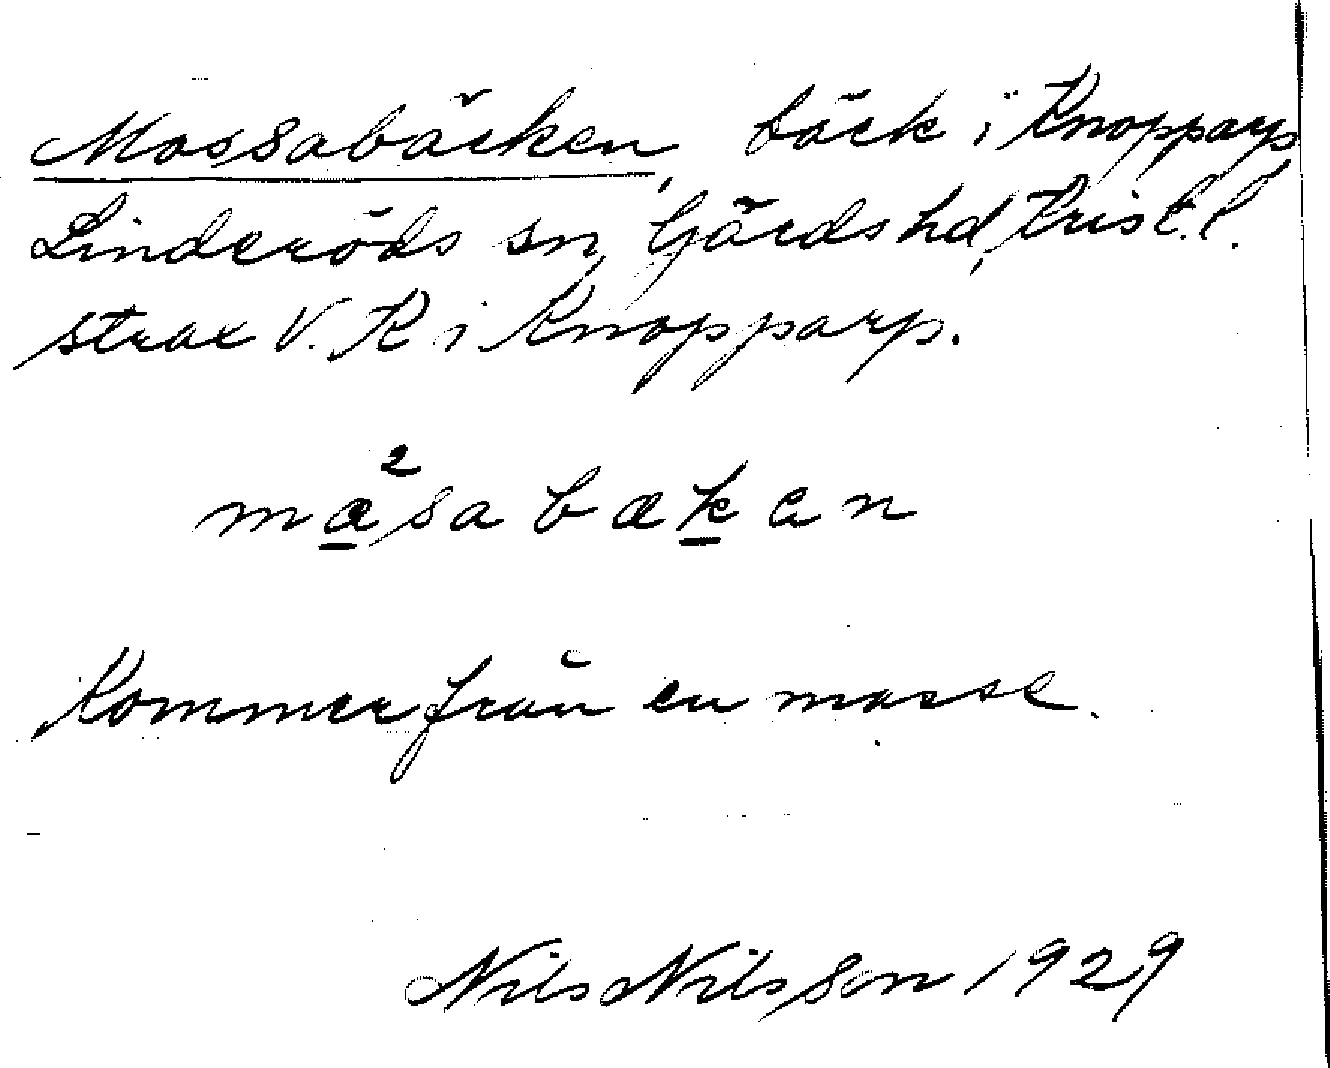 Mossabäcken, bäck i Knopparp,
Linderöds sn, Gärds hd, Krist. l.
strax V. K i Knopparp.
ma²sabækan
Kommer från en mosse.
Nils Nilsson 1929